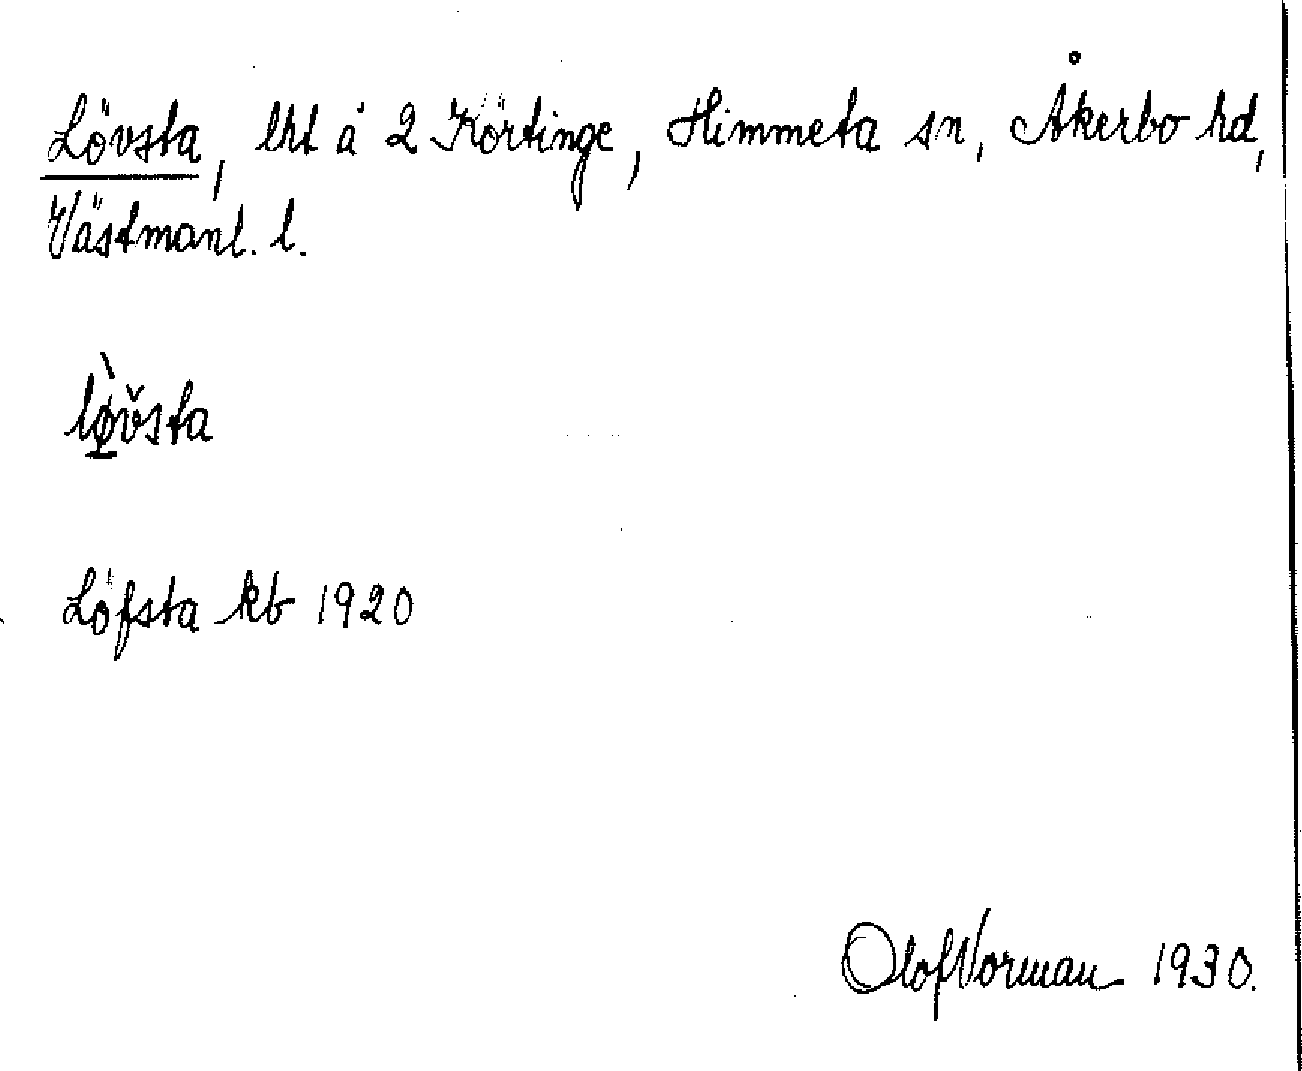 Lövsta, lht å 2 Körtinge, Himmeta sn, Åkerbo hd,
Västmanl. l.
lø̱̀v̌sta
Löfsta kb 1920
Olof Norman 1930.